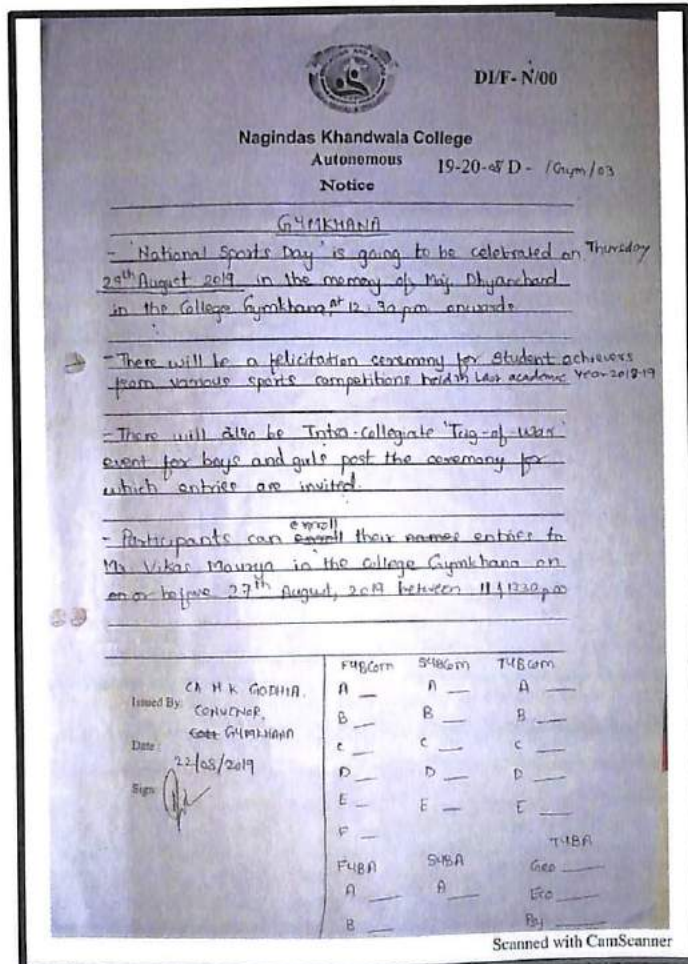 DI/F- N/00
Nagindas Khandwala College
Autonomous
19-20-08 D - /Gym/03
Notice
GYMKHANA
- 'National Sports Day' is going to be celebrated on Thursday
29th August 2019 in the memory of Maj. Dhyanchand
in the College Gymkhana, at 12.30 pm onwards
- There will be a felicitation ceremony for student achievers
from various sports competitions held in Last academic Year-2018-19
- There will also be Intra-Collegiate 'Tug-of-War'
event for boys and girls post the ceremony for
which entries are invited.
- Participants can enroll their names entries to
Mr. Vikas Maurya in the College Gymkhana on
on or before 27th August, 2019 between 11 & 12.30 pm
Issued By: CA M K GODHIA.
CONVENOR,
GYMKHANA
Date: 22/08/2019
Sign:
FYBCom SYBCom TYBCom
A A A
B B B
C C C
D D D
E E E
F
TYBA
FYBA SYBA Geo
A A Eco
B Psy
Scanned with CamScanner